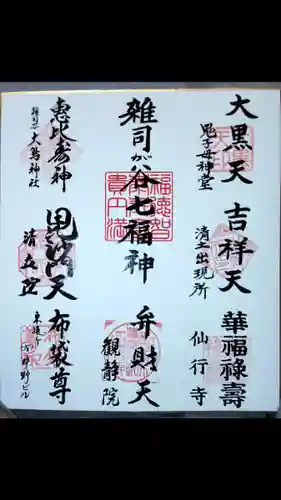 大黒天
鬼子母神堂
吉祥天
清土出現所
華福禄壽
仙行寺
雑司が谷七福神
弁財天
観静院
恵比寿神
雑司が谷大鳥神社
毘沙門天
清立院
布袋尊
野ビル